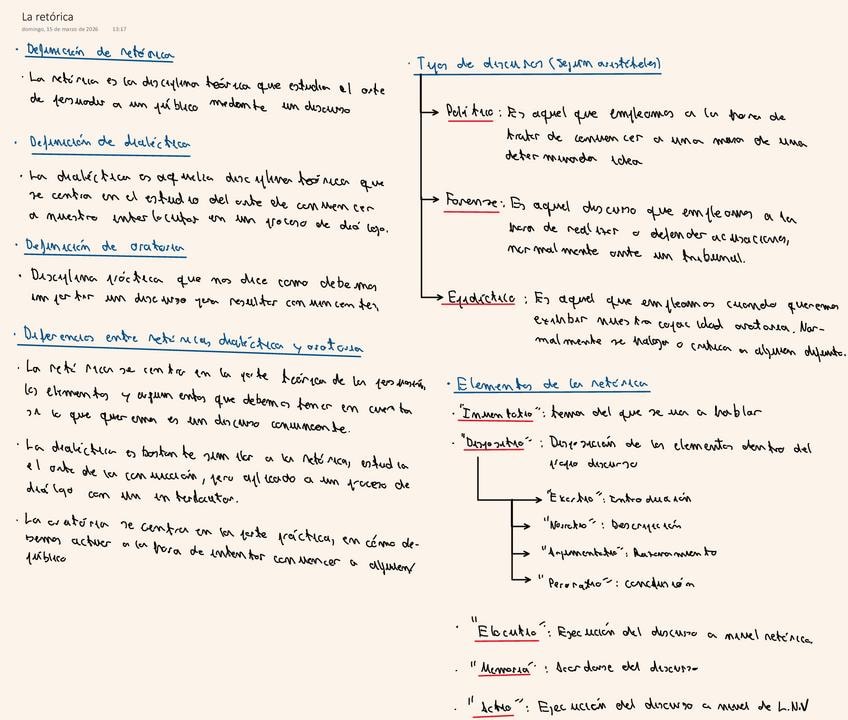 La retórica
domingo, 15 de marzo de 2026 13:17
· Definición de retórica
· La retórica es la disciplina teórica que estudia el arte
de persuadir a un público mediante un discurso
· Definición de dialéctica
· La dialéctica es aquella disciplina teórica que
se centra en el estudio del arte de convencer
a nuestro interlocutor en un proceso de diálogo.
· Definición de oratoria
· Disciplina práctica que nos dice como debemos
impartir un discurso para resultar convincentes,
· Diferencias entre retóricas, dialéctica y oratoria
· La retórica se centra en la parte teórica de la persuasión,
los elementos y argumentos que debemos tener en cuenta
si lo que queremos es un discurso convincente.
· La dialéctica es bastante similar a la retórica, estudia
el arte de la convicción, pero aplicado a un proceso de
diálogo con un interlocutor.
· La oratória se centra en la parte práctica, en cómo de-
bemos actuar a la hora de intentar convencer a alguien/
público
· Tipos de discursos (según aristóteles)
Político: Es aquel que empleamos a la hora de
tratar de convencer a una masa de una
determinada idea
Forense: Es aquel discurso que empleamos a la
hora de realizar o defender acusaciones,
normalmente ante un tribunal.
Epidíctico: Es aquel que empleamos cuando queremos
exhibir nuestra capacidad oratoria. Nor-
malmente se halaga o critica a alguien difunto.
· Elementos de la retórica
· "Inventatio": tema del que se va a hablar
· "Dispositio": Disposición de los elementos dentro del
propio discurso
"Exortio": Introducción
"Narratio": Descripción
"Argumentatio": Razonamiento
"Peroratio": conclusión
· "Elocutio": Ejecución del discurso a nivel retórica
· "Memoria": Acordarse del discurso
· "Actio": Ejecución del discurso a nivel de L.N.V